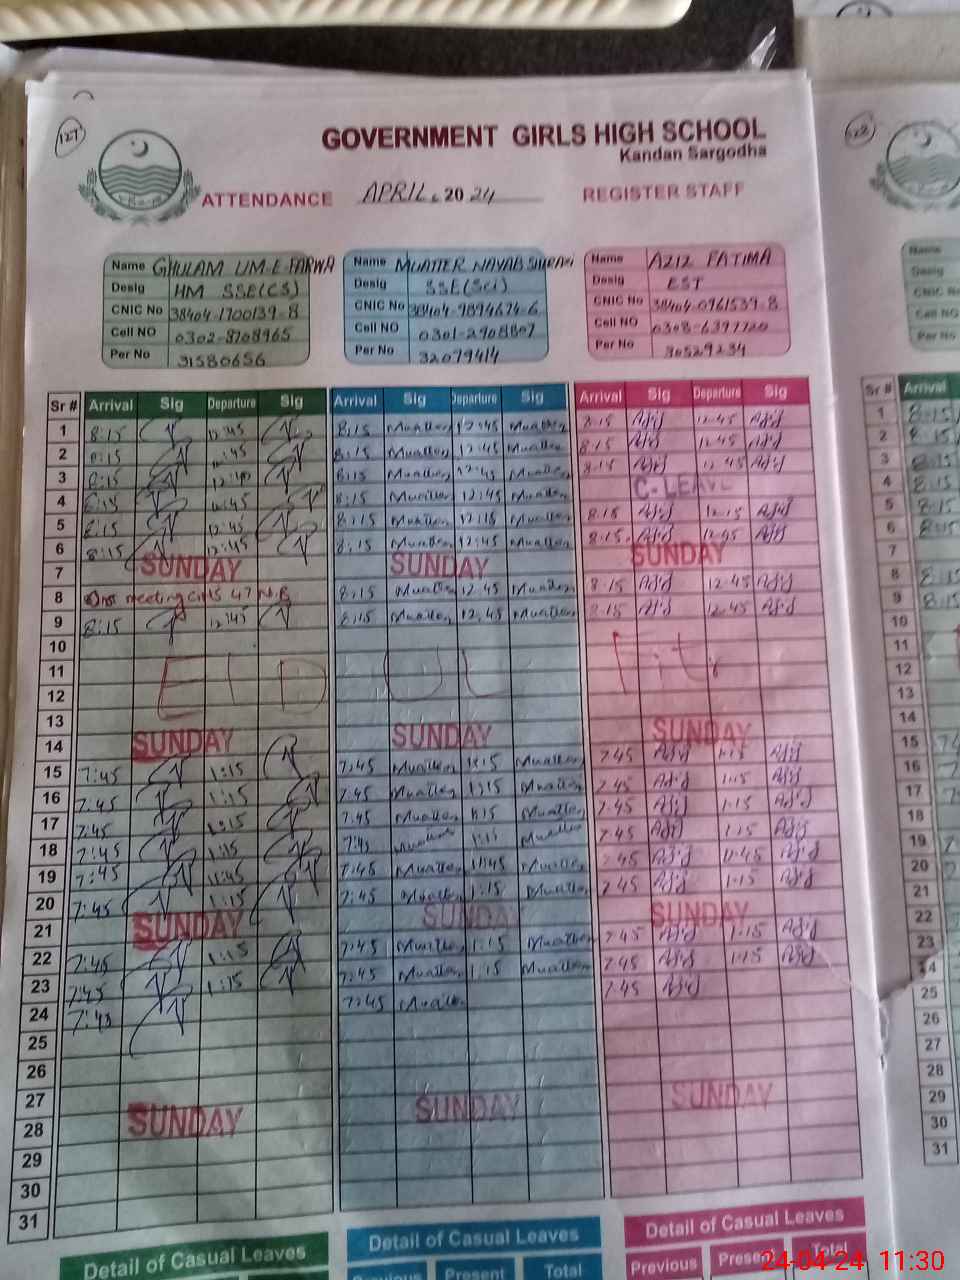 127
GOVERNMENT GIRLS HIGH SCHOOL
Kandan Sargodha
ATTENDANCE APRIL, 2024 REGISTER STAFF
Name GHULAM UM-E-FARWA
Desig HM SSE(CS)
CNIC No 38404-1700139-8
Cell NO 0302-8708965
Per No 31580656
Name MUATTER NAYAB SHIRAZI
Desig SSE(Sci)
CNIC No 38404-9894674-6
Cell NO 0301-2908807
Per No 32079414
Name AZIZ FATIMA
Desig EST
CNIC No 38404-0961539-8
Cell NO 0308-6397720
Per No 30529234
Sr # Arrival Sig Departure Sig Arrival Sig Departure Sig Arrival Sig Departure Sig
1 8:15 12:45 8:15 Muatter 12:45 Muatter 8:15 12:45
2 8:15 12:45 8:15 Muatter 12:45 Muatter 8:15 12:45
3 8:15 8:15 Muatter 12:45 Muatter 8:15 12:45
4 8:15 12:45 8:15 Muatter 12:45 Muatter C-LEAVE
5 8:15 12:45 8:15 Muatter 12:15 Muatter 8:15 12:15
6 8:15 12:45 8:15 Muatter 12:45 Muatter 8:15 12:45
7 SUNDAY SUNDAY SUNDAY
8 meeting 8:15 Muatter 12:45 Muatter 8:15 12:45
9 8:15 12:45 8:15 Muatter 12:45 Muatter 8:15 12:45
10
11 EID UL FIT
12
13
14 SUNDAY SUNDAY SUNDAY
15 7:45 1:15 7:45 Muatter 1:15 Muatter 7:45 1:15
16 7:45 1:15 7:45 Muatter 1:15 Muatter 7:45 1:15
17 7:45 1:15 7:45 Muatter 1:15 Muatter 7:45 1:15
18 7:45 1:15 7:45 1:15 Muatter 7:45 1:15
19 7:45 11:45 7:45 Muatter 11:45 Muatter 7:45 11:45
20 7:45 1:15 7:45 Muatter 1:15 Muatter 7:45 1:15
21 SUNDAY SUNDAY SUNDAY
22 7:45 1:15 7:45 Muatter 1:15 Muatter 7:45 1:15
23 7:45 1:15 7:45 Muatter 1:15 Muatter 7:45 1:15
24 7:45 7:45 Muatter 7:45
25
26
27
28 SUNDAY SUNDAY SUNDAY
29
30
31
Detail of Casual Leaves Detail of Casual Leaves Detail of Casual Leaves
Previous Present Total Previous Present Total
128
Name
Desig
CNIC No
Cell NO
Per No
Sr # Arrival
1 8:15
2
3 8:15
4 8:15
5 8:15
6 8:15
7
8 8:15
9 8:15
10
11
12
13
14
15
16
17
18
19
20
21
22
23
24
25
26
27
28
29
30
31
24-04-24 11:30